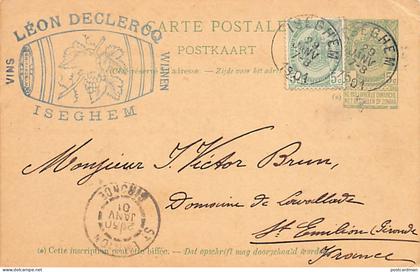 LÉON DECLERCQ
VINS
WIJNEN
ISEGHEM
CARTE POSTALE
POSTKAART
Côté réservé à l'adresse. — Zijde voor het adres
ISEGHEM
29
JANV
1901
ISEGHEM
29
JANV
1901
5
5
(a)
Monsieur J. Victor Brun,
Domaine de
St Emilion (Gironde)
France
ST EMILION
GIRONDE
JANV
01
(a) Cette inscription peut être biffée. — Dat opschrift mag doorgehaald worden.